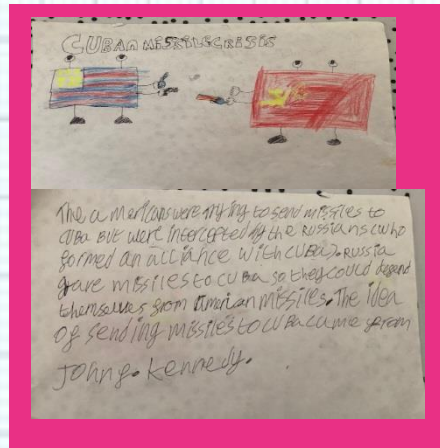 CUBAN MISSILE CRISIS
The americans were trying to send missiles to
CUBa BUT were intercepted by the RUSSIANS (who
formed an alliance with CUBA). RUSSIA
gave missiles to CUBa so they could defend
themselves from American missiles. The idea
of sending missiles to CUBa came from
John f. Kennedy.